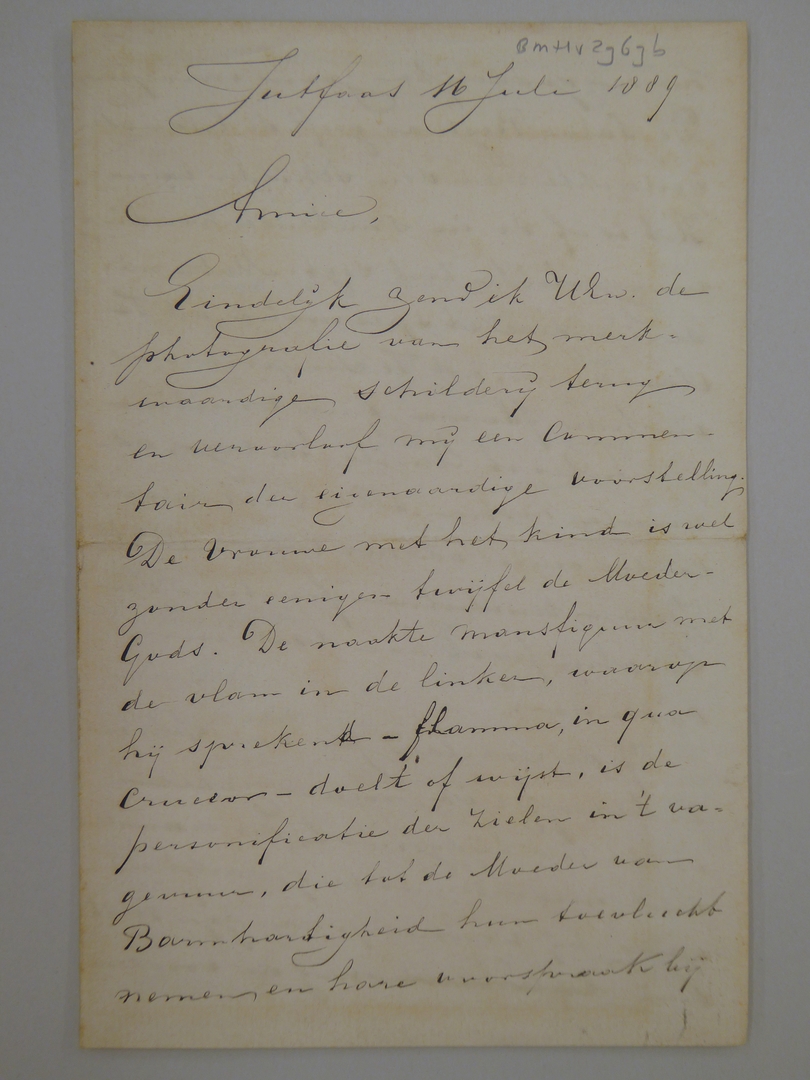 BmHv2g6gb
Jutfaas 16 Juli 1889
Amice,
Eindelijk zend ik UEw. de
photografie van het merk-
waardige schilderij terug
en veroorloof mij een Commen-
tair der eigenaardige voorstelling.
De Vrouwe met het kind is wel
zonder eenigen twijfel de Moeder-
Gods. De naakte mansfiguur met
de vlam in de linker, waarop
hij sprekend - flamma, in qua
crucior - doelt of wijst, is de
personificatie der Zielen in 't va-
gevuur, die tot de Moeder van
Barmhartigheid hun toevlucht
nemen en hare voorspraak bij